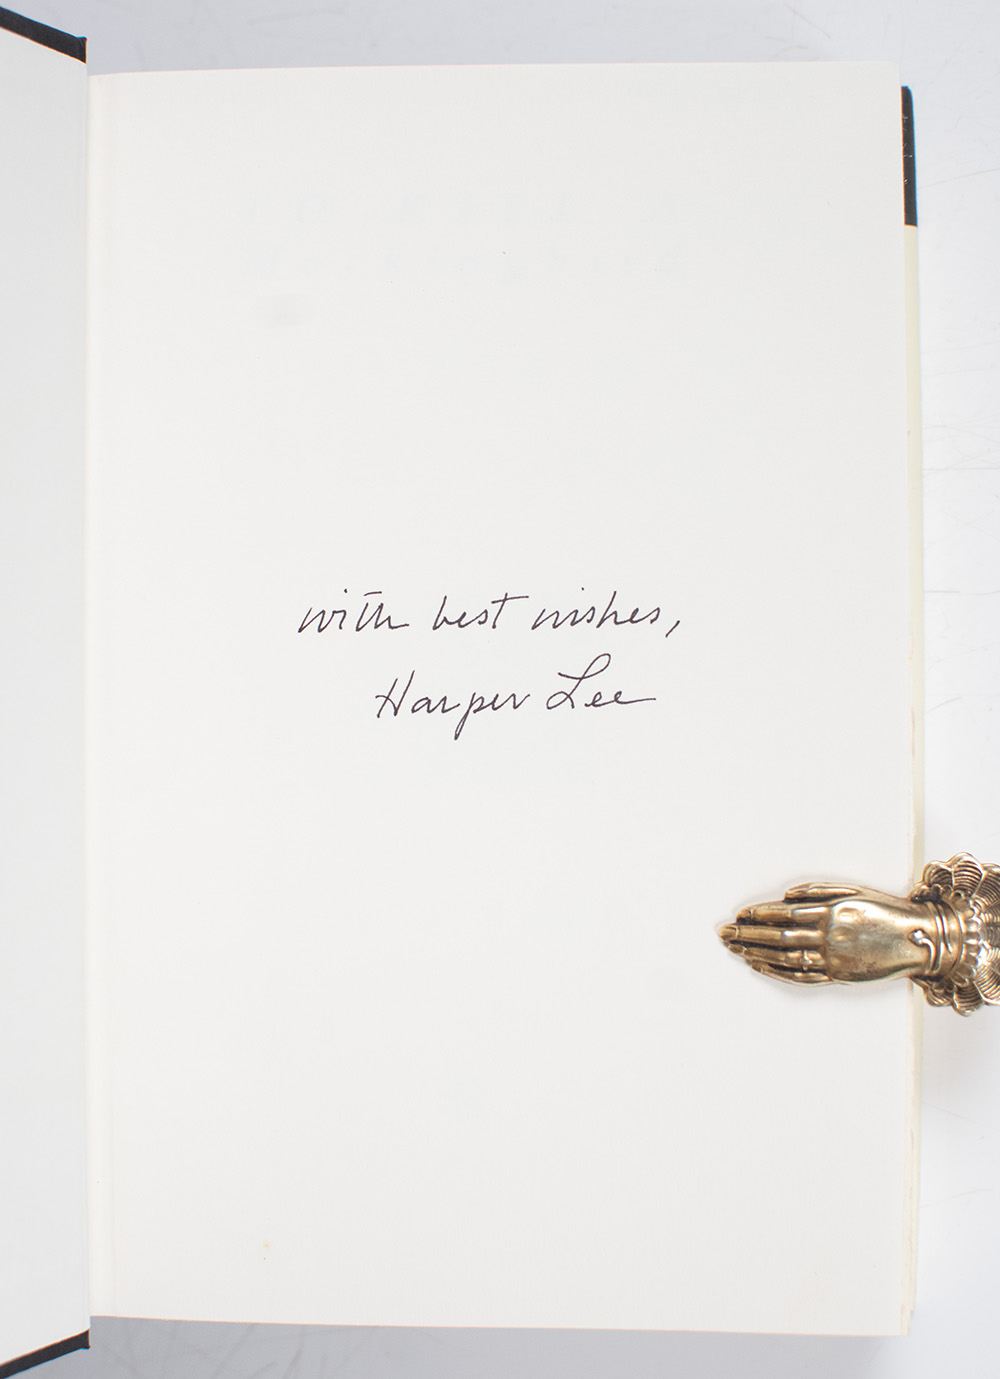 with best wishes,
Harper Lee